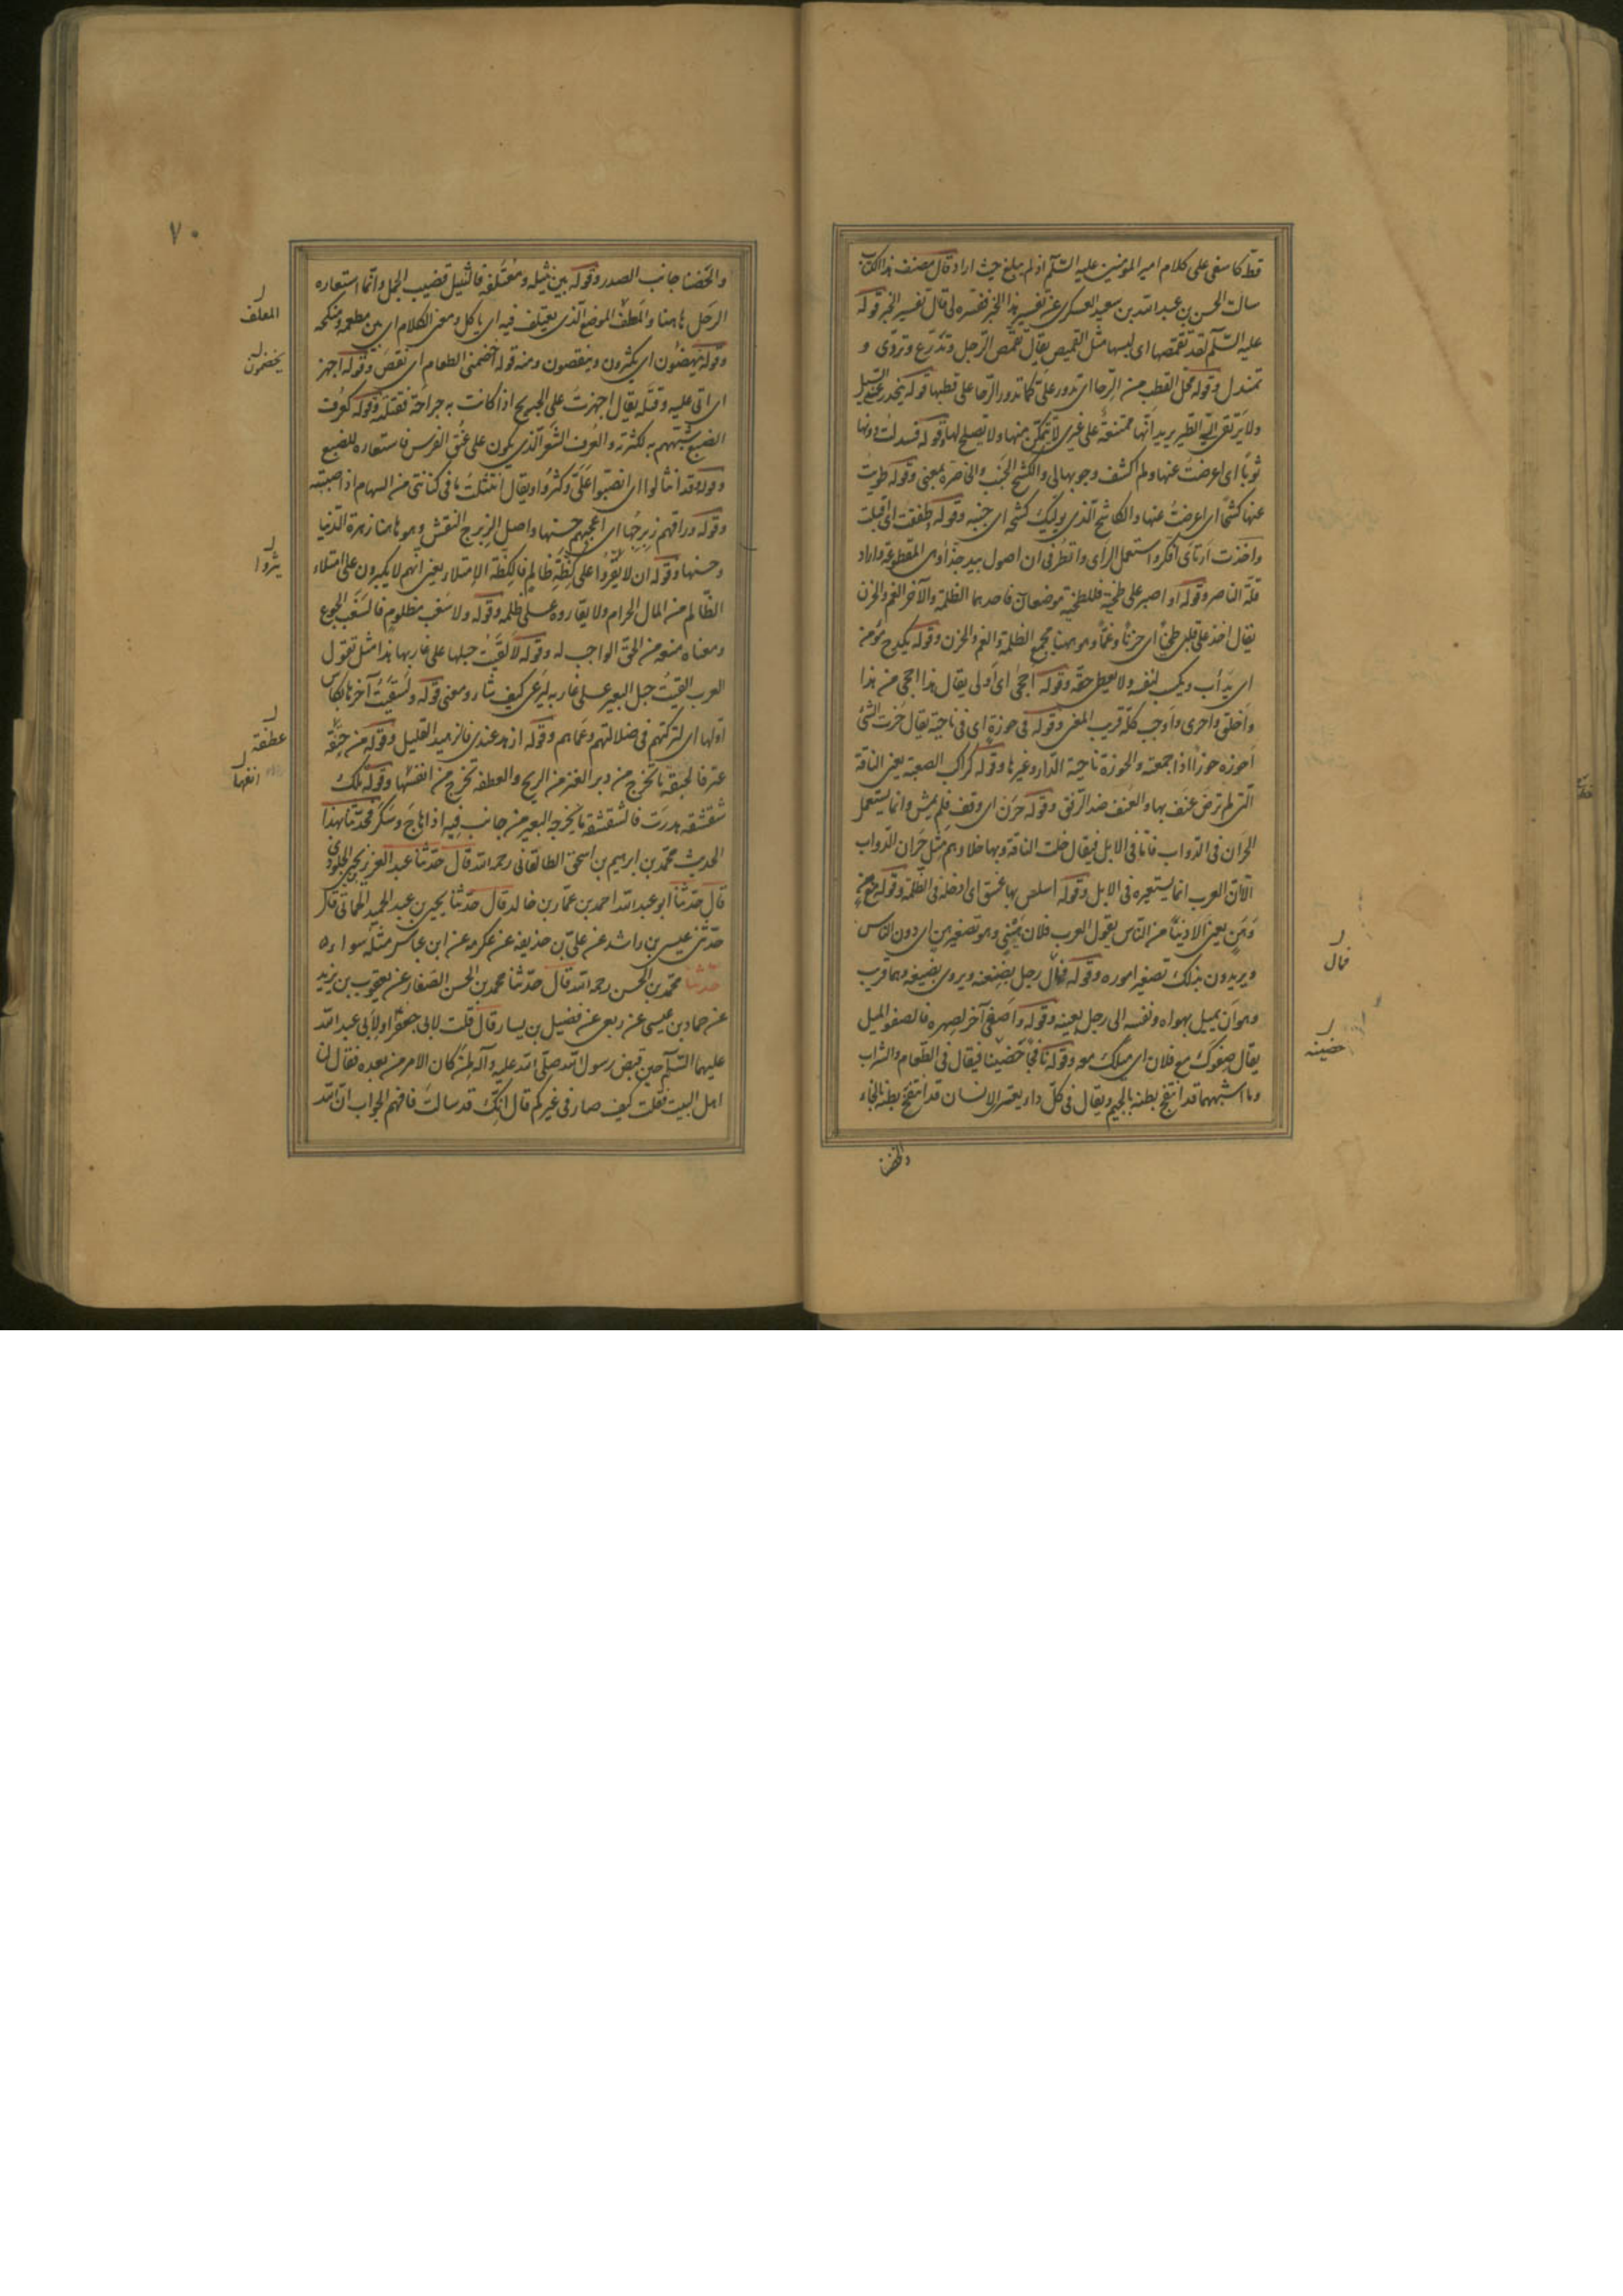 قط كاسفي على كلام امير المؤمنين عليه السّلم اذ لم يبلغ حيث اراد قال مصنف هذا الكتاب
سالت الحسن بن عبد الله بن سعيد العسكري عن تفسير هذا الخبر ففسره لي قال تفسير الخبر قوله
عليه السّلم لقد تقمّصها اى لبسها مثل القميص يقال تقمّص الرّجل وتدرّع وتردى و
تمندل وقوله محل القطب من الرّحا اى تدور علىّ كما تدور الرّحا على قطبها قوله ينحدر عنّي السّيل
ولا يَرتقي اليّه الطّير يريد انّها ممتنعة على غيري لا يتمكّن منها ولا يصلح لها وقوله فسدلت دونها
ثوبًا اى اعرضت عنها ولم اكشف وجوبها لى والكشح الجَنب والخاصرة بمعنى وقوله طويتُ
عنها كشحًا اى اعرضتُ عنها والكاشح الّذي يوليك كشحه اى جنبه وقوله طفقت اى اقبلت
واخذت ارتأى افكر واستعمل الراى وانظر في ان اصول بيد جذّاء وهى المقطوعة واراد
قلّة الناصر وقوله او اصبر على طخية فللطخية موضعان فاحدهما الظلمة والآخر الغم والحزن
يقال اخذ على قلبي طخيًا اى حزنًا وغمًّا وهو ههنا يجمع الظلمة والغم والحزن وقوله يكدح مؤمن
اى يَدأب ويكسب لنفسه ولا يعطى حقّه وقوله احجى اى اولى يقال هذا احجى من هذا
واخلق واحرى واوجب كلّه قريب المعنى وقوله في حوزةٍ اى في ناحية يقال حُزت الشئ
احوزه حوزًا اذا جمعته والحوزة ناحية الدّار وغيرها وقوله كراكب الصعبة يعني الناقة
الّتي لم تُرَضْ عنف بها والعُنف ضد الرّفق وقوله حَرَن اى وقف فلم يمش وانما يستعمل
الحِران في الدّواب فامّا في الابل فيقال خلت الناقة وبها خلاء وهو مثل حِران الدّواب
الّا انّ العرب انما يستعيره في الابل وقوله اسلس بها عسق اى ادخله في الظلمة وقوله مع هنٍ
وَهَنٍ يعني الادنيآء من النّاس يقول العرب فلان هُنَيٌّ وهو تصغير هنٍ اى دون النّاس
ويريدون بذلك تصغير اموره وقوله فمال رجل بضبعه ويروى بضلعه وهما قريب
وهو ان يميل بهواه ونفسه الى رجل بعينه وقوله واَصغى آخر لصهره فالصغو الميل
يقال صغوك مع فلان اى ميلك معه وقوله نافجًا حضنيه فيقال في الطّعام والشراب
وما اشبههما قد انتفج بطنه بالجيم ويقال في كلّ داء يعترى الانسان قد انتفخ بطنه بالخاء
والحضنا
فمال
حضنيه
٧٠
والحِضنا جانب الصدر وقوله بين نثيله ومُعتَلَفه فالنّثيل قضيب الجمل وانّما استعاره
الرّجل هاهنا والمَعْلَف الموضع الّذي يعتلف فيه اى ياكل ومعنى الكلام اى بين مطعمه ومنكحه
وقوله يَهْضِمُون اى يكثرون وينقصون ومنه قوله اهضمني الطعام اى نقص وقوله اجهز
اى اتى عليه وقتله يقال اجهزتُ على الجريح اذا كانت به جراحة فقتله وقوله كعُرف
الضبع شبّههم به لكثرته والعُرف الشعر الّذي يكون على عُنُق الفرس فاستعاره للضبع
وقوله قد انثالوا اى انصبّوا علَىّ وكثروا ويقال انتثلتُ ما في كنانتي من السهام اذا صببته
وقوله وراقهم زِبرِجُها اى اعجبهم حسنها واصل الزبرج النقش وهو هاهنا زهرة الدّنيا
وحسنها وقوله ان لا يَقُرُّوا على كِظّة ظالمٍ فالكظّة الامتلاء يعني انهم لا يكبرون على امتلاء
الظّالم من المال الحرام ولا يقاروه على ظلمه وقوله ولا سَغَب مظلوم فالسَّغَب الجوع
ومعناه منعه من الحق الواجب له وقوله لألقيتُ حبلها على غاربها هذا مثل تقول
العرب القيتُ حبل البعير على غاربه ليَرعى كيف شاء ومعنى قوله ولسقيتُ آخرها بكاس
اوّلها اى لتركتهم في ضلالتهم وعماهم وقوله ازهد عندي فالزهيد القليل وقوله من حَبْقَة
عنز فالحبقة ما يخرج من دبر العنز من الريح والعطفة تخرج من انفها وقوله تلك
شقشقة هدرَت فالشقشقة ما يخرجه البعير من جانب فيه اذا هاج وسكر فحدّثنا بهذا
الحديث محمّد بن ابرهيم بن اسحق الطالقاني رحمه الله قال حدّثنا عبد العزيز بن يحيى الجلودي
قال حدّثنا ابو عبد الله احمد بن عمّار بن خالد قال حدّثنا يحيى بن عبد الحميد الحمّانيّ قال
حدّثني عيسى بن راشد عن علىّ بن حذيفة عن عكرمه عن ابن عباس مثله سواء
حدثنا محمّد بن الحسن رحمه الله قال حدّثنا محمّد بن الحسن الصفّار عن يعقوب بن يزيد
عن حماد بن عيسى عن ربعى عن فضيل بن يسار قال قلت لابي جعفر او لابي عبد الله
عليهما السّلم حين قبض رسول الله صلّى الله عليه وآله لمن كان الامر من بعده فقال لنا
اهل البيت فقلت كيف صار في غيركم قال انّك قد سالتَ فافهم الجواب انّ الله
المعلف
يخضمون
يثروا
عطفة
انفها